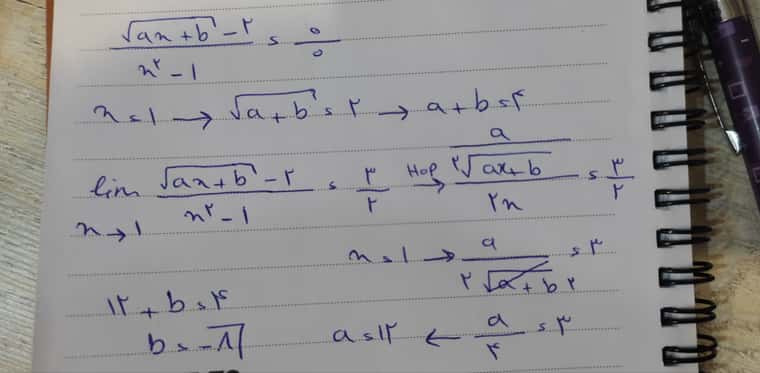 (√(ax+b) - ۲) / (x^۲ - ۱) = ۰/۰
x = ۱ → √(a+b) = ۲ → a + b = ۴
lim x→۱ (√(ax+b) - ۲) / (x^۲ - ۱) = ۳/۲ Hop→ (a / (۲√(ax+b))) / (۲x) = ۳/۲
x = ۱ → a / (۲√(a+b)) ۲ = ۳
۱۲ + b = ۴
b = -۸
a = ۱۲ ← a/۴ = ۳